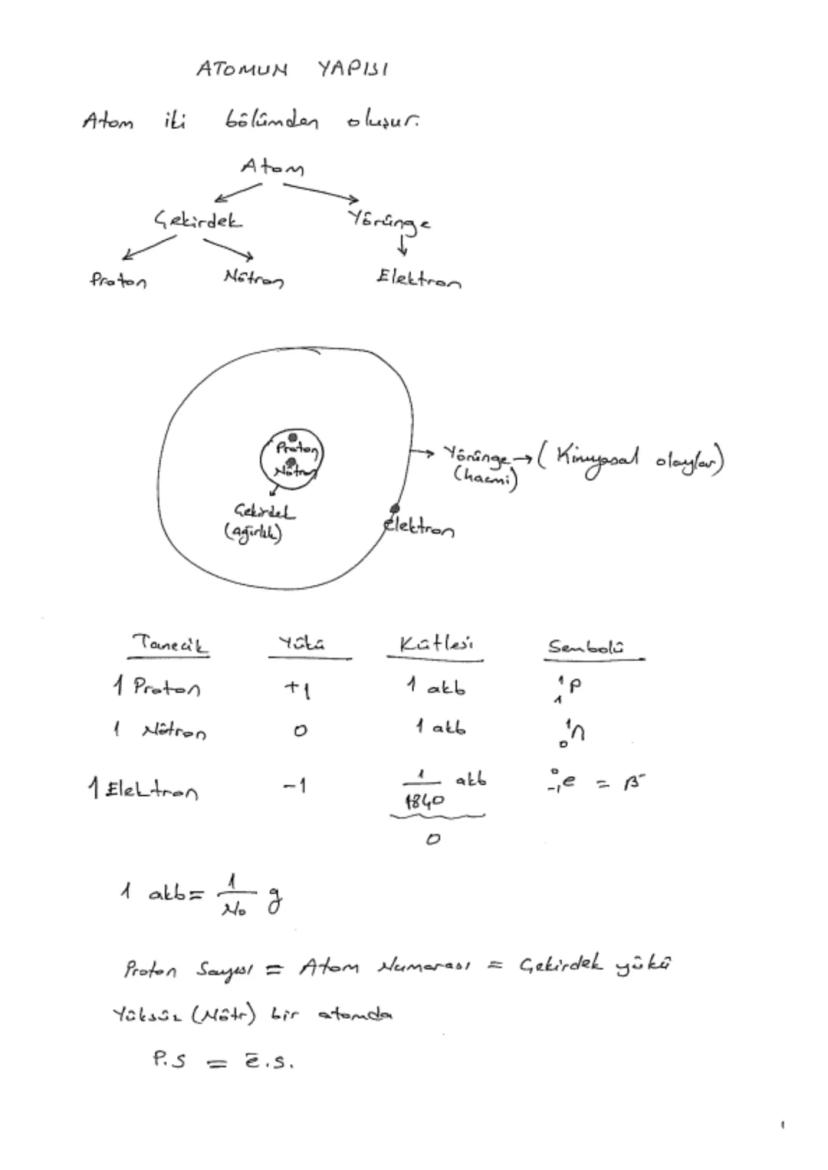 ATOMUN YAPISI
Atom iki bölümden oluşur.
Atom
Çekirdek Yörünge
Proton Nötron Elektron
Proton
Nötron
Çekirdek
(ağırlık)
Yörünge → (Kimyasal olaylar)
(hacmi)
elektron
Tanecik Yükü Kütlesi Sembolü
1 Proton +1 1 akb ¹₁P
1 Nötron 0 1 akb ¹₀n
1 Elektron -1 1/1840 akb ⁰₋₁e = β⁻
0
1 akb = 1/N₀ g
Proton Sayısı = Atom Numarası = Çekirdek yükü
Yüksüz (Nötr) bir atomda
P.S = e̅.s.
1